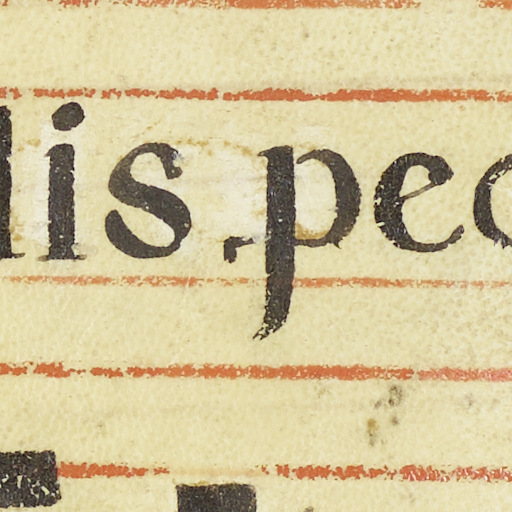 lis, pec